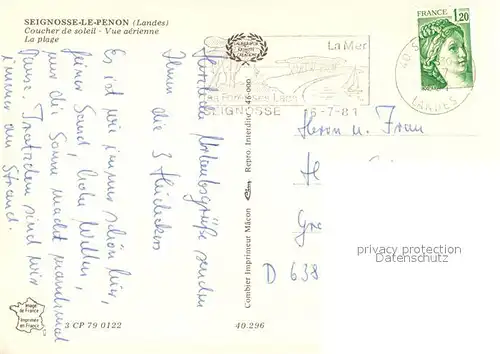 SEIGNOSSE-LE-PENON (Landes)
Coucher de soleil - Vue aérienne
La plage
Es ist wie immer schön hier,
feiner Sand, hohe Wellen,
nur die Sonne macht manchmal
Pause. Trotzdem sind wir
immer am Strand.
Herzliche Urlaubsgrüße senden
Ihnen die 3
Combier Imprimeur Mâcon
Repro. Interdite 46-000
La Mer
SEIGNOSSE
16-7-81
FRANCE
1,20
LANDES
Herrn u. Frau
H
Gre
D 638
privacy protection
DATENSCHUTZ
Image
de France
Imprimée
en France
3 CP 79 0122
40.296